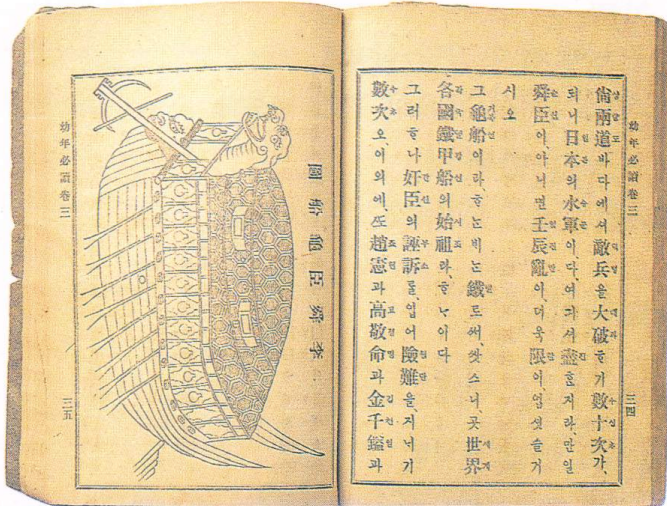 幼年必讀卷三
三四
尙兩道바다에셔敵兵을大破ᄒᆞ기數十次가、
되니日本의水軍이、다、여긔셔盡ᄒᆞᆫ지라、만일
舜臣이、아니면壬辰亂이、더욱限이업셧슬거
시오
그龜船이라、ᄒᆞᄂᆞᆫ비ᄂᆞᆫ鐵로써、쌋스니、곳世界
各國鐵甲船의始祖라、ᄒᆞᄂᆞ이다
그러ᄒᆞ나奸臣의誣訴를、입어險難을、지ᄂᆡ기
數次오、이외에、ᄯᅩ趙憲과高敬命과金千鎰과
李舜臣龜船圖
幼年必讀卷三
三五